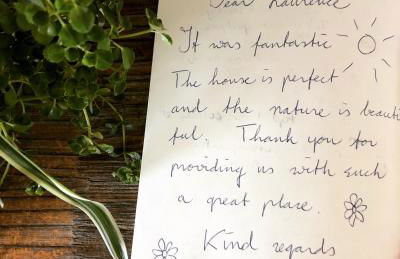 Dear Laurence
It was fantastic
The house is perfect
and the nature is beauti
ful. Thank you for
providing us with such
a great place.
Kind regards